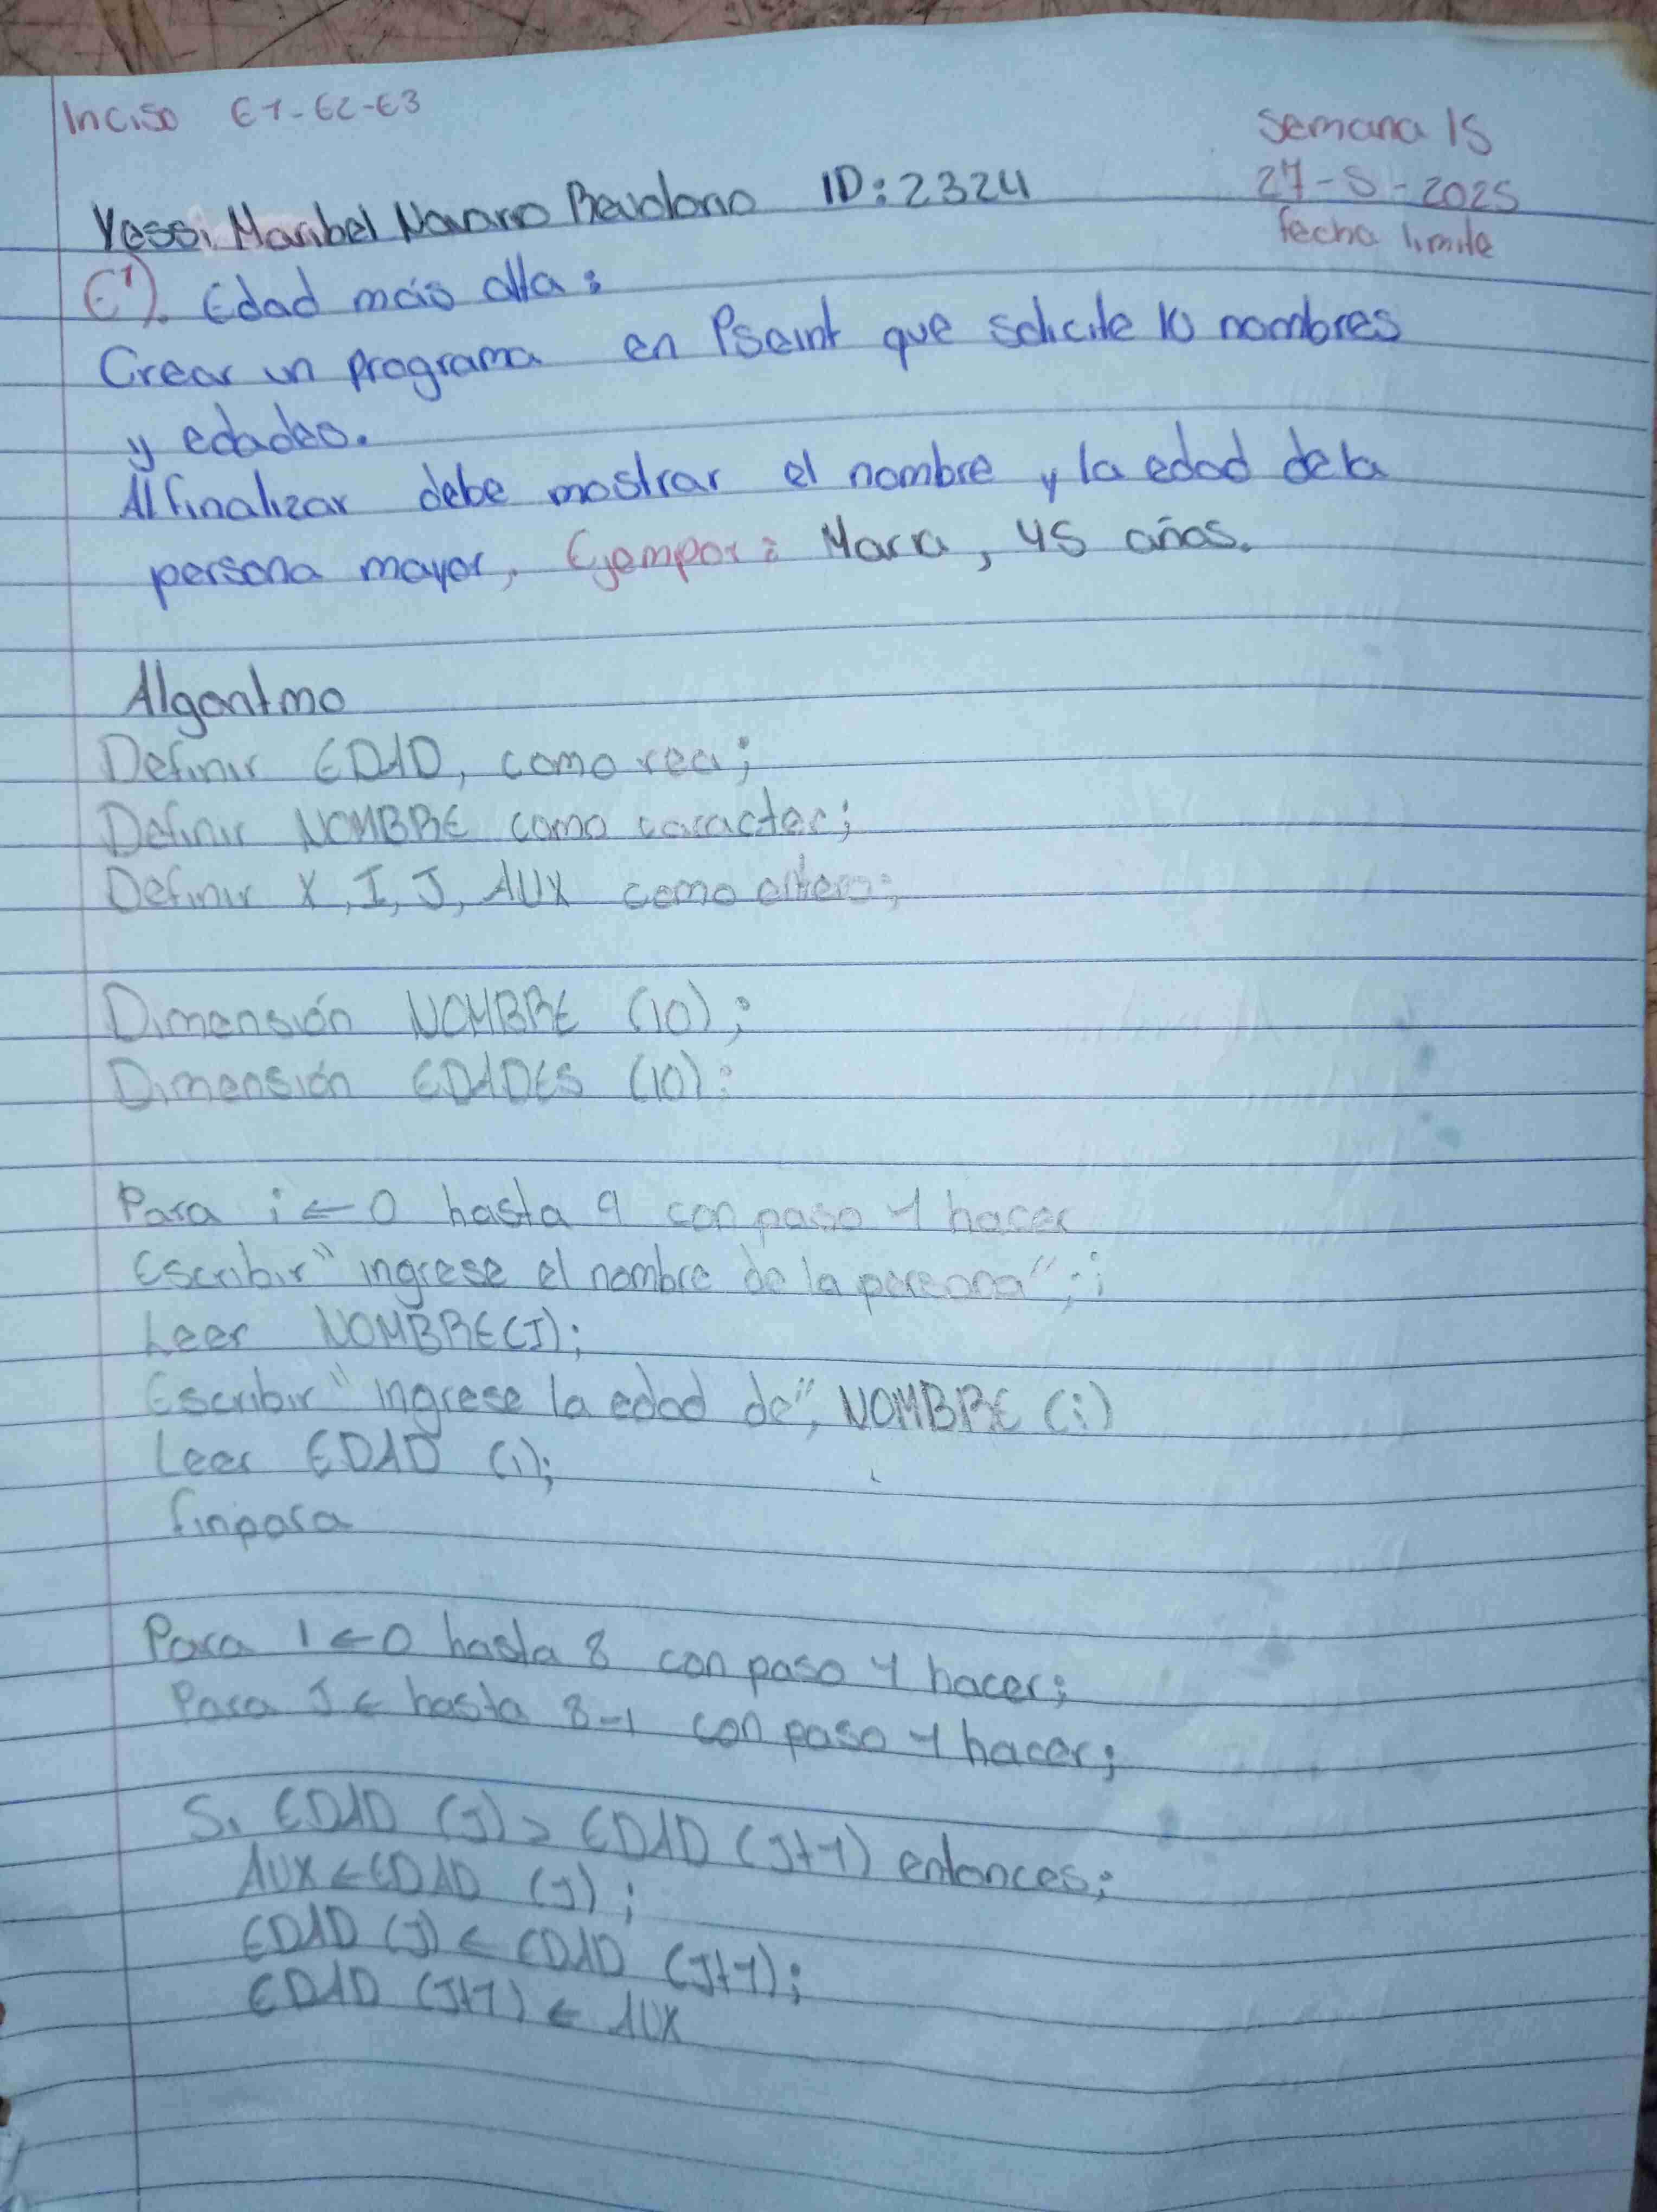 Inciso E1-E2-E3
Semana 15
27-5-2025
fecha limite
Yessi Maribel Navarro ID: 2324
E1). Edad más alta:
Crear un programa en Pseint que solicite 10 nombres
y edades.
Al finalizar debe mostrar el nombre y la edad de la
persona mayor, Ejempor: Maria, 45 años.
Algoritmo
Definir EDAD, como rea;
Definir NOMBRE como caracter;
Definir X, I, J, AUX como entero;
Dimensión NOMBRE (10);
Dimensión EDADES (10);
Para i ← 0 hasta 9 con paso 1 hacer
Escribir "ingrese el nombre de la persona", i
Leer NOMBRE(I);
Escribir "ingrese la edad de", NOMBRE (i)
Leer EDAD (i);
finpara
Para I ← 0 hasta 8 con paso 1 hacer;
Para J ← hasta 8-1 con paso 1 hacer;
Si EDAD (J) > EDAD (J+1) entonces;
AUX ← EDAD (J);
EDAD (J) ← EDAD (J+1);
EDAD (J+1) ← AUX